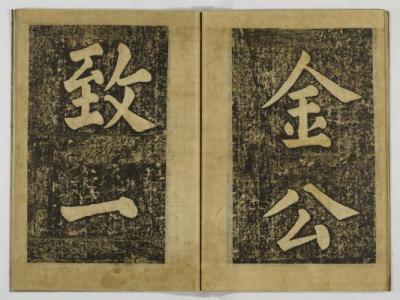 金公
致一